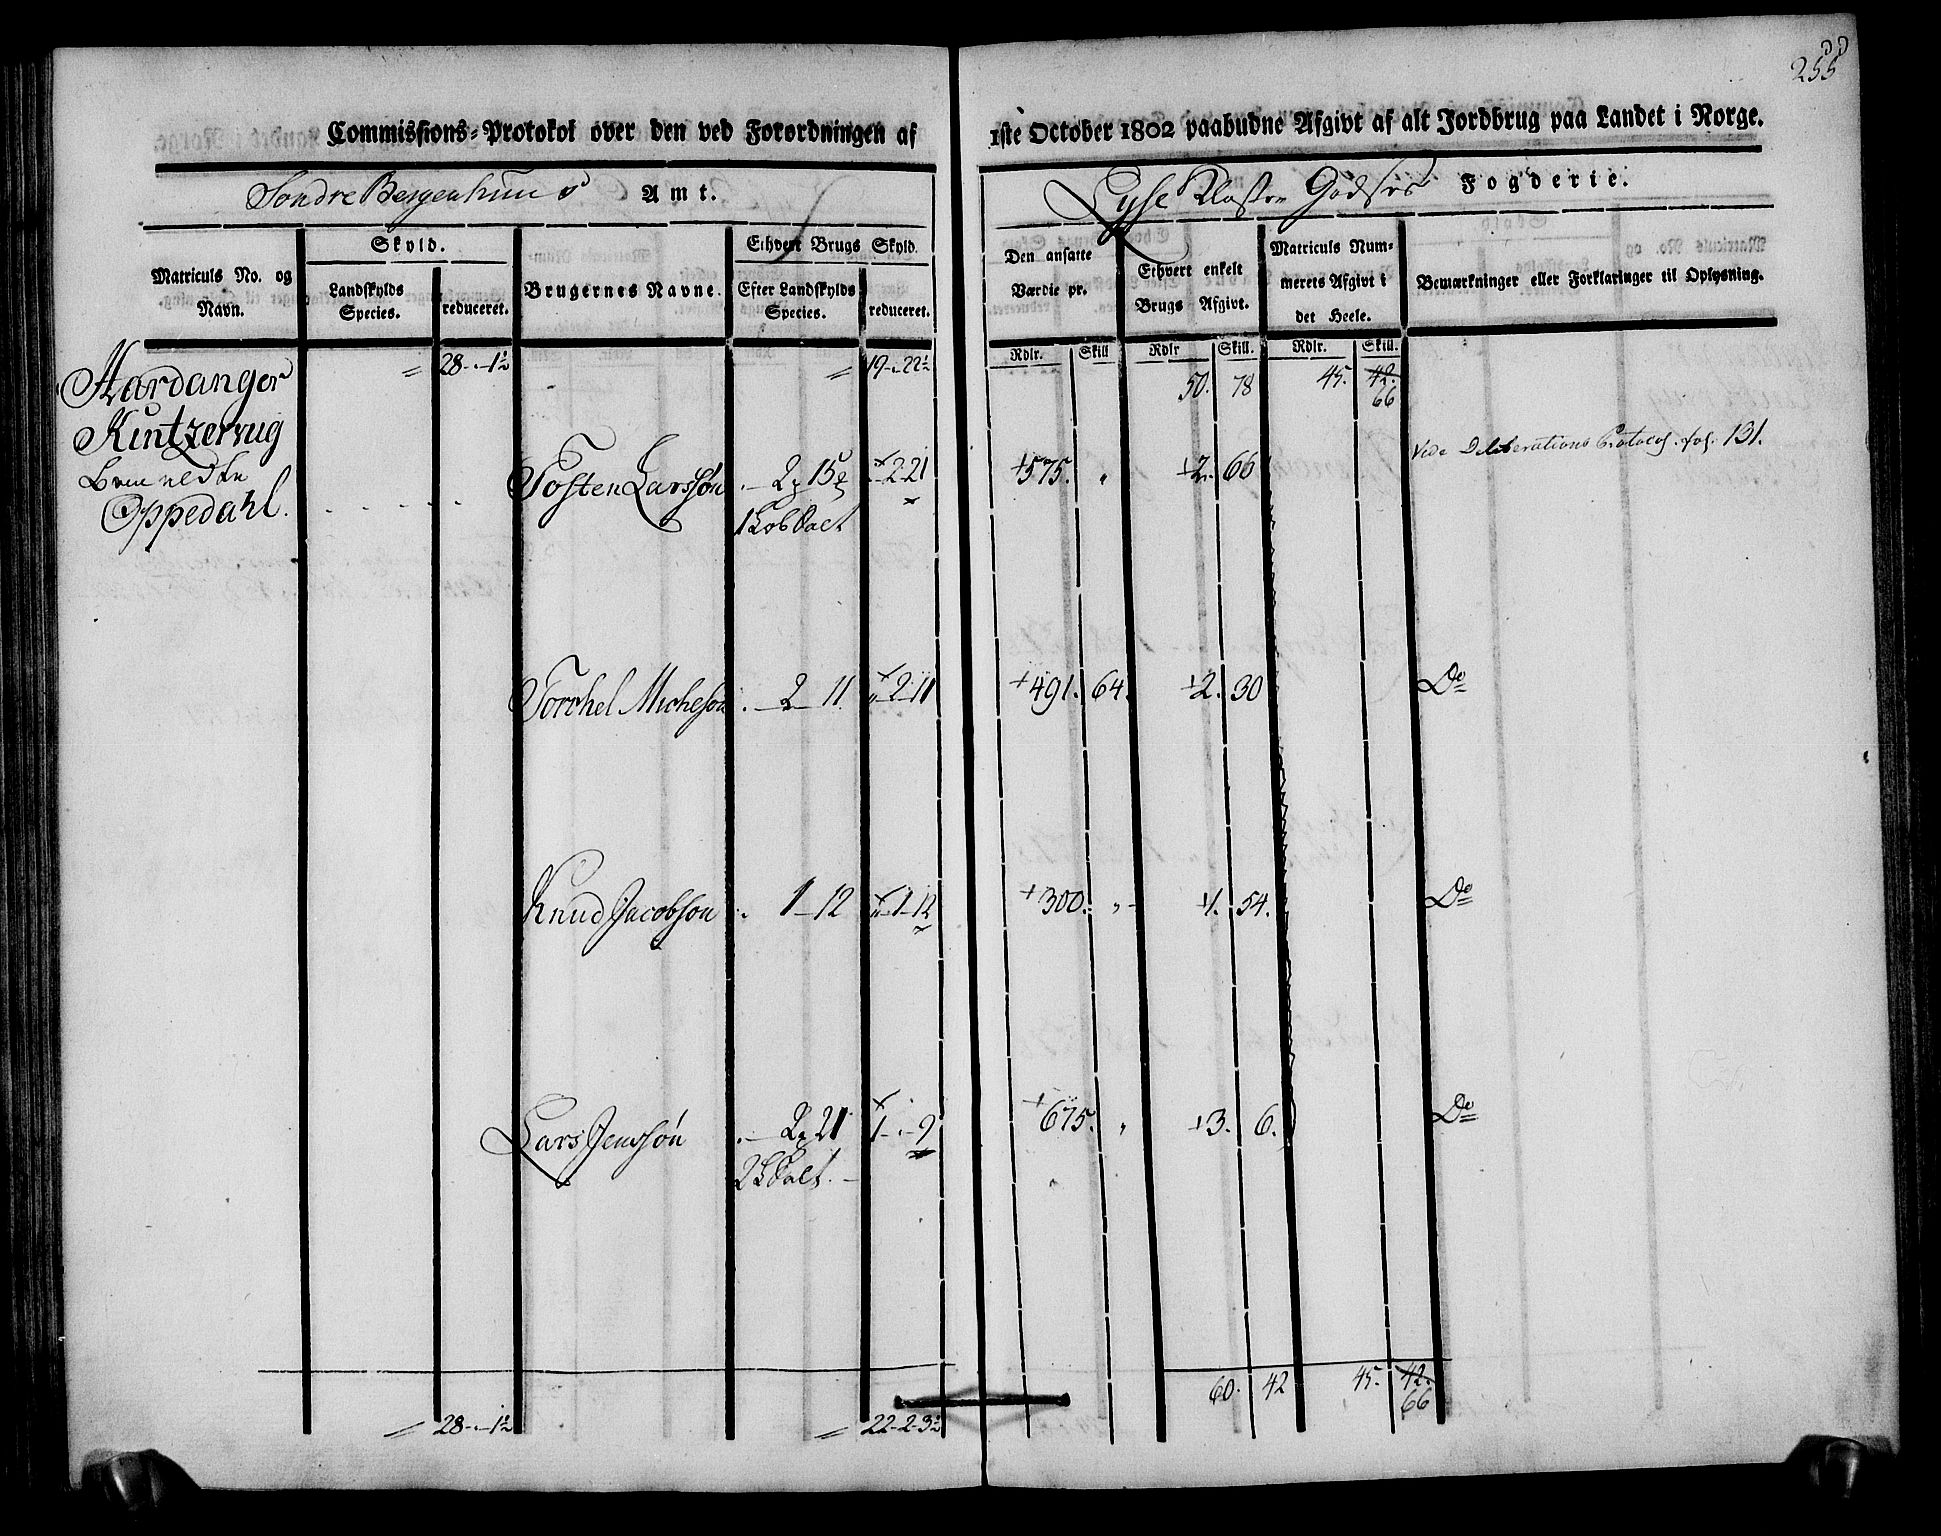 255
Commissions-Protokol over den ved Forordningen af 1ste October 1802 paabudne Afgivt af alt Jordbrug paa Landet i Norge.
Søndre Bergenhuus Amt. Lyse Kloster Godses Fogderie.
Matriculs No. og Navn. Skyld. Landskylds Species. reduceret. Brugernes Navne. Ethvert Brugs Skyld. Efter Landskylds Species. reduceret. Den ansatte Værdie pr. Ethvert enkelt Brugs Afgivt. Matriculs Nummerets Afgivt i det Heele. Bemærkninger eller Forklaringer til Oplysning.
Rdlr. Skill Rdlr Skill. Rdlr. Skill.
Hardanger 28-"-1½ 19-"-22½ 50. 78 45. 42.
66
Kintzervug
Oppedahl. Tosten Larssøn 2 15 2-21 575. " 2. 66 Vide Deliberations Protocol. fol. 131.
1 Løb Salt
Torchel Michelson 2-11 2-11 491. 64. 2. 30 Do
Knud Jacobsøn 1-12 1-12 300. " 1. 54. Do
Lars Jenssøn 2 21 1-"-9 675. " 3. 6. Do
2 L Salt.
60. 42 45. 42.
66
28-"-1½ 22-2-3½